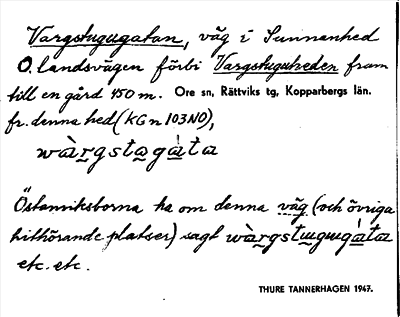 Vargstugugatan, väg i Sunnanhed
O. landsvägen förbi Vargstuguheden fram
till en gård 450 m. Ore sn, Rättviks tg, Kopparbergs län.
fr. denna hed (KG n 103 NO),
wàrgstagáta
Östanviksborna ha om denna väg (och övriga
hithörande platser) sagt wàrgstuguga̍ta
etc. etc.
THURE TANNERHAGEN 1947.